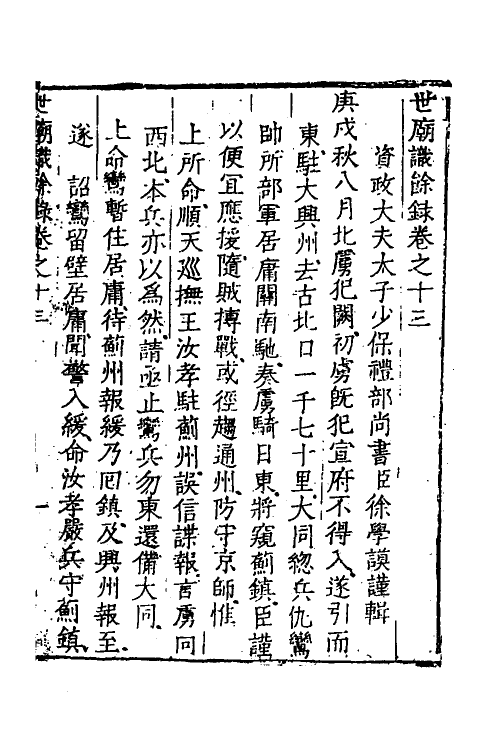 世廟識餘錄卷之十三
資政大夫太子少保禮部尚書臣徐學謨謹輯
庚戌秋八月北虜犯闕初虜既犯宣府不得入遂引而
東駐大興州去古北口一千七十里大同總兵仇鸞
帥所部軍居庸關南馳奏虜騎日東將窺薊鎮臣謹
以便宜應援隨賊搏戰或徑趨通州防守京師惟
上所命順天巡撫王汝孝駐薊州誤信諜報言虜向
西北本兵亦以為然請亟止鸞兵勿東還備大同
上命鸞暫住居庸待薊州報緩乃回鎮及興州報至
遂 詔鸞留壁居庸聞警入緩命汝孝嚴兵守薊鎮
世廟識餘錄卷之十三
一